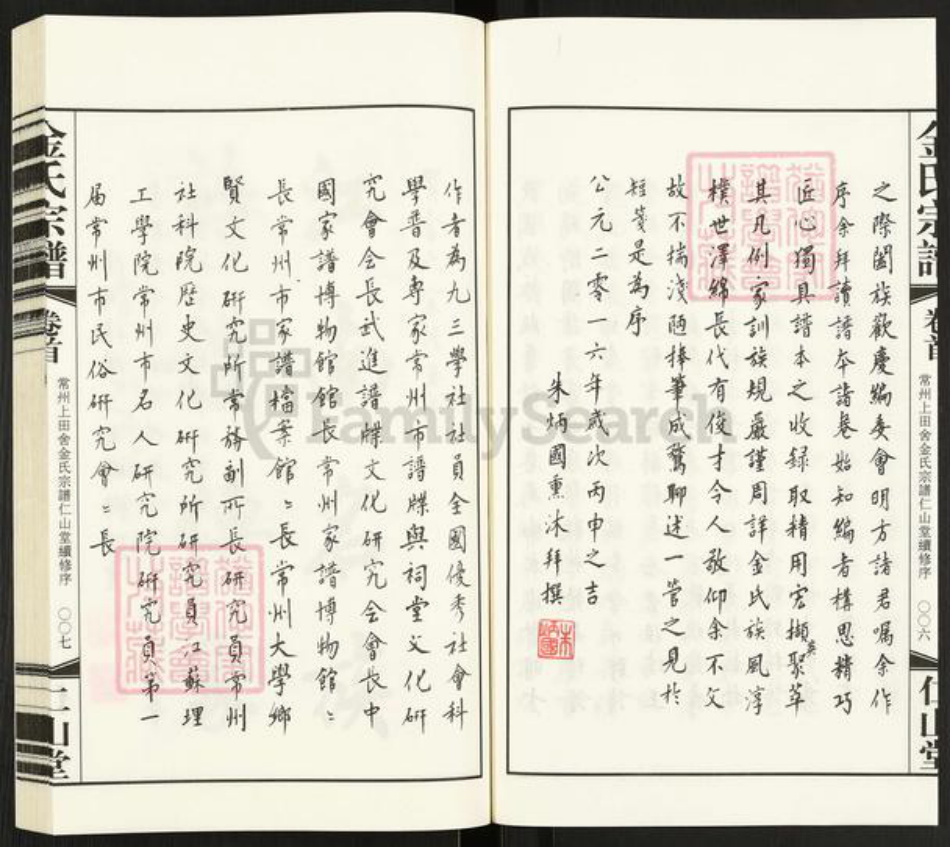 金氏宗譜
卷首
常州上田舍金氏宗譜仁山堂續修序
〇〇六
仁山堂
之際闔族歡慶編委會明方諸君囑余作
序余拜讀譜本諸卷始知編者構思精巧
匠心獨具譜本之收録取精用宏擷英聚萃
其凡例家訓族規嚴謹周詳金氏族風淳
樸世澤綿長代有俊才令人敬仰余不文
故不揣淺陋捧筆成驚聊述一管之見於
短箋是為序
公元二零一六年歲次丙申之吉
朱炳國熏沐拜撰
作者為九三學社社員全國優秀社會科
學普及專家常州市譜牒與祠堂文化研
究會會長武進譜牒文化研究会會長中
國家譜博物館館長常州家譜博物館〻
長常州市家譜檔案館〻長常州大學鄉
賢文化研究所常務副所長研究員常州
社科院歷史文化研究所研究員江蘇理
工學院常州市名人研究院研究員第一
届常州市民俗研究會〻長
金氏宗譜
卷首
常州上田舍金氏宗譜仁山堂續修序
〇〇七
仁山堂
FamilySearch